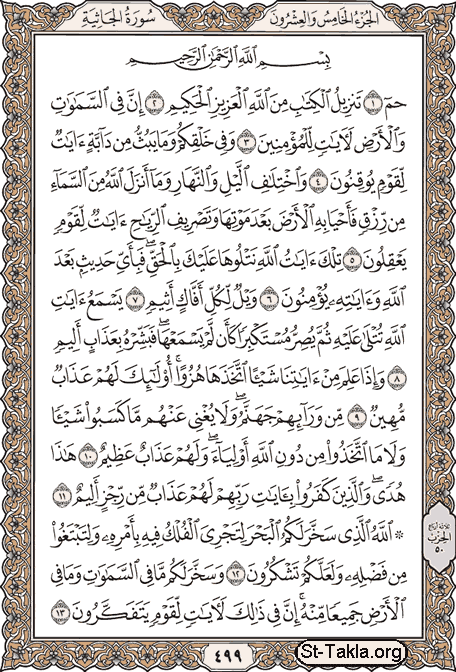 سُورَةُ الجَاثِيَةِ
الجُزْءُ الخَامِسُ وَالعِشْرُونَ
بِسْمِ اللَّهِ الرَّحْمَٰنِ الرَّحِيمِ
حمٓ ١ تَنزِيلُ الْكِتَابِ مِنَ اللَّهِ الْعَزِيزِ الْحَكِيمِ ٢ إِنَّ فِي السَّمَاوَاتِ
وَالْأَرْضِ لَآيَاتٍ لِّلْمُؤْمِنِينَ ٣ وَفِي خَلْقِكُمْ وَمَا يَبُثُّ مِن دَابَّةٍ ءَايَاتٌ
لِّقَوْمٍ يُوقِنُونَ ٤ وَاخْتِلَافِ اللَّيْلِ وَالنَّهَارِ وَمَا أَنزَلَ اللَّهُ مِنَ السَّمَاءِ
مِن رِّزْقٍ فَأَحْيَا بِهِ الْأَرْضَ بَعْدَ مَوْتِهَا وَتَصْرِيفِ الرِّيَاحِ ءَايَاتٌ لِّقَوْمٍ
يَعْقِلُونَ ٥ تِلْكَ ءَايَاتُ اللَّهِ نَتْلُوهَا عَلَيْكَ بِالْحَقِّ ۖ فَبِأَيِّ حَدِيثٍ بَعْدَ
اللَّهِ وَءَايَاتِهِ يُؤْمِنُونَ ٦ وَيْلٌ لِّكُلِّ أَفَّاكٍ أَثِيمٍ ٧ يَسْمَعُ ءَايَاتِ
اللَّهِ تُتْلَىٰ عَلَيْهِ ثُمَّ يُصِرُّ مُسْتَكْبِرًا كَأَن لَّمْ يَسْمَعْهَا ۖ فَبَشِّرْهُ بِعَذَابٍ أَلِيمٍ
٨ وَإِذَا عَلِمَ مِنْ ءَايَاتِنَا شَيْئًا اتَّخَذَهَا هُزُوًا ۚ أُولَٰئِكَ لَهُمْ عَذَابٌ
مُّهِينٌ ٩ مِّن وَرَائِهِمْ جَهَنَّمُ ۖ وَلَا يُغْنِي عَنْهُم مَّا كَسَبُوا شَيْئًا
وَلَا مَا اتَّخَذُوا مِن دُونِ اللَّهِ أَوْلِيَاءَ ۖ وَلَهُمْ عَذَابٌ عَظِيمٌ ١٠ هَٰذَا
هُدًى ۖ وَالَّذِينَ كَفَرُوا بِآيَاتِ رَبِّهِمْ لَهُمْ عَذَابٌ مِّن رِّجْزٍ أَلِيمٌ ١١
۞ اللَّهُ الَّذِي سَخَّرَ لَكُمُ الْبَحْرَ لِتَجْرِيَ الْفُلْكُ فِيهِ بِأَمْرِهِ وَلِتَبْتَغُوا
مِن فَضْلِهِ وَلَعَلَّكُمْ تَشْكُرُونَ ١٢ وَسَخَّرَ لَكُم مَّا فِي السَّمَاوَاتِ وَمَا فِي
الْأَرْضِ جَمِيعًا مِّنْهُ ۚ إِنَّ فِي ذَٰلِكَ لَآيَاتٍ لِّقَوْمٍ يَتَفَكَّرُونَ ١٣
ثلاثة أرباع
الحزب
٥٠
٤٩٩
St-Takla.org